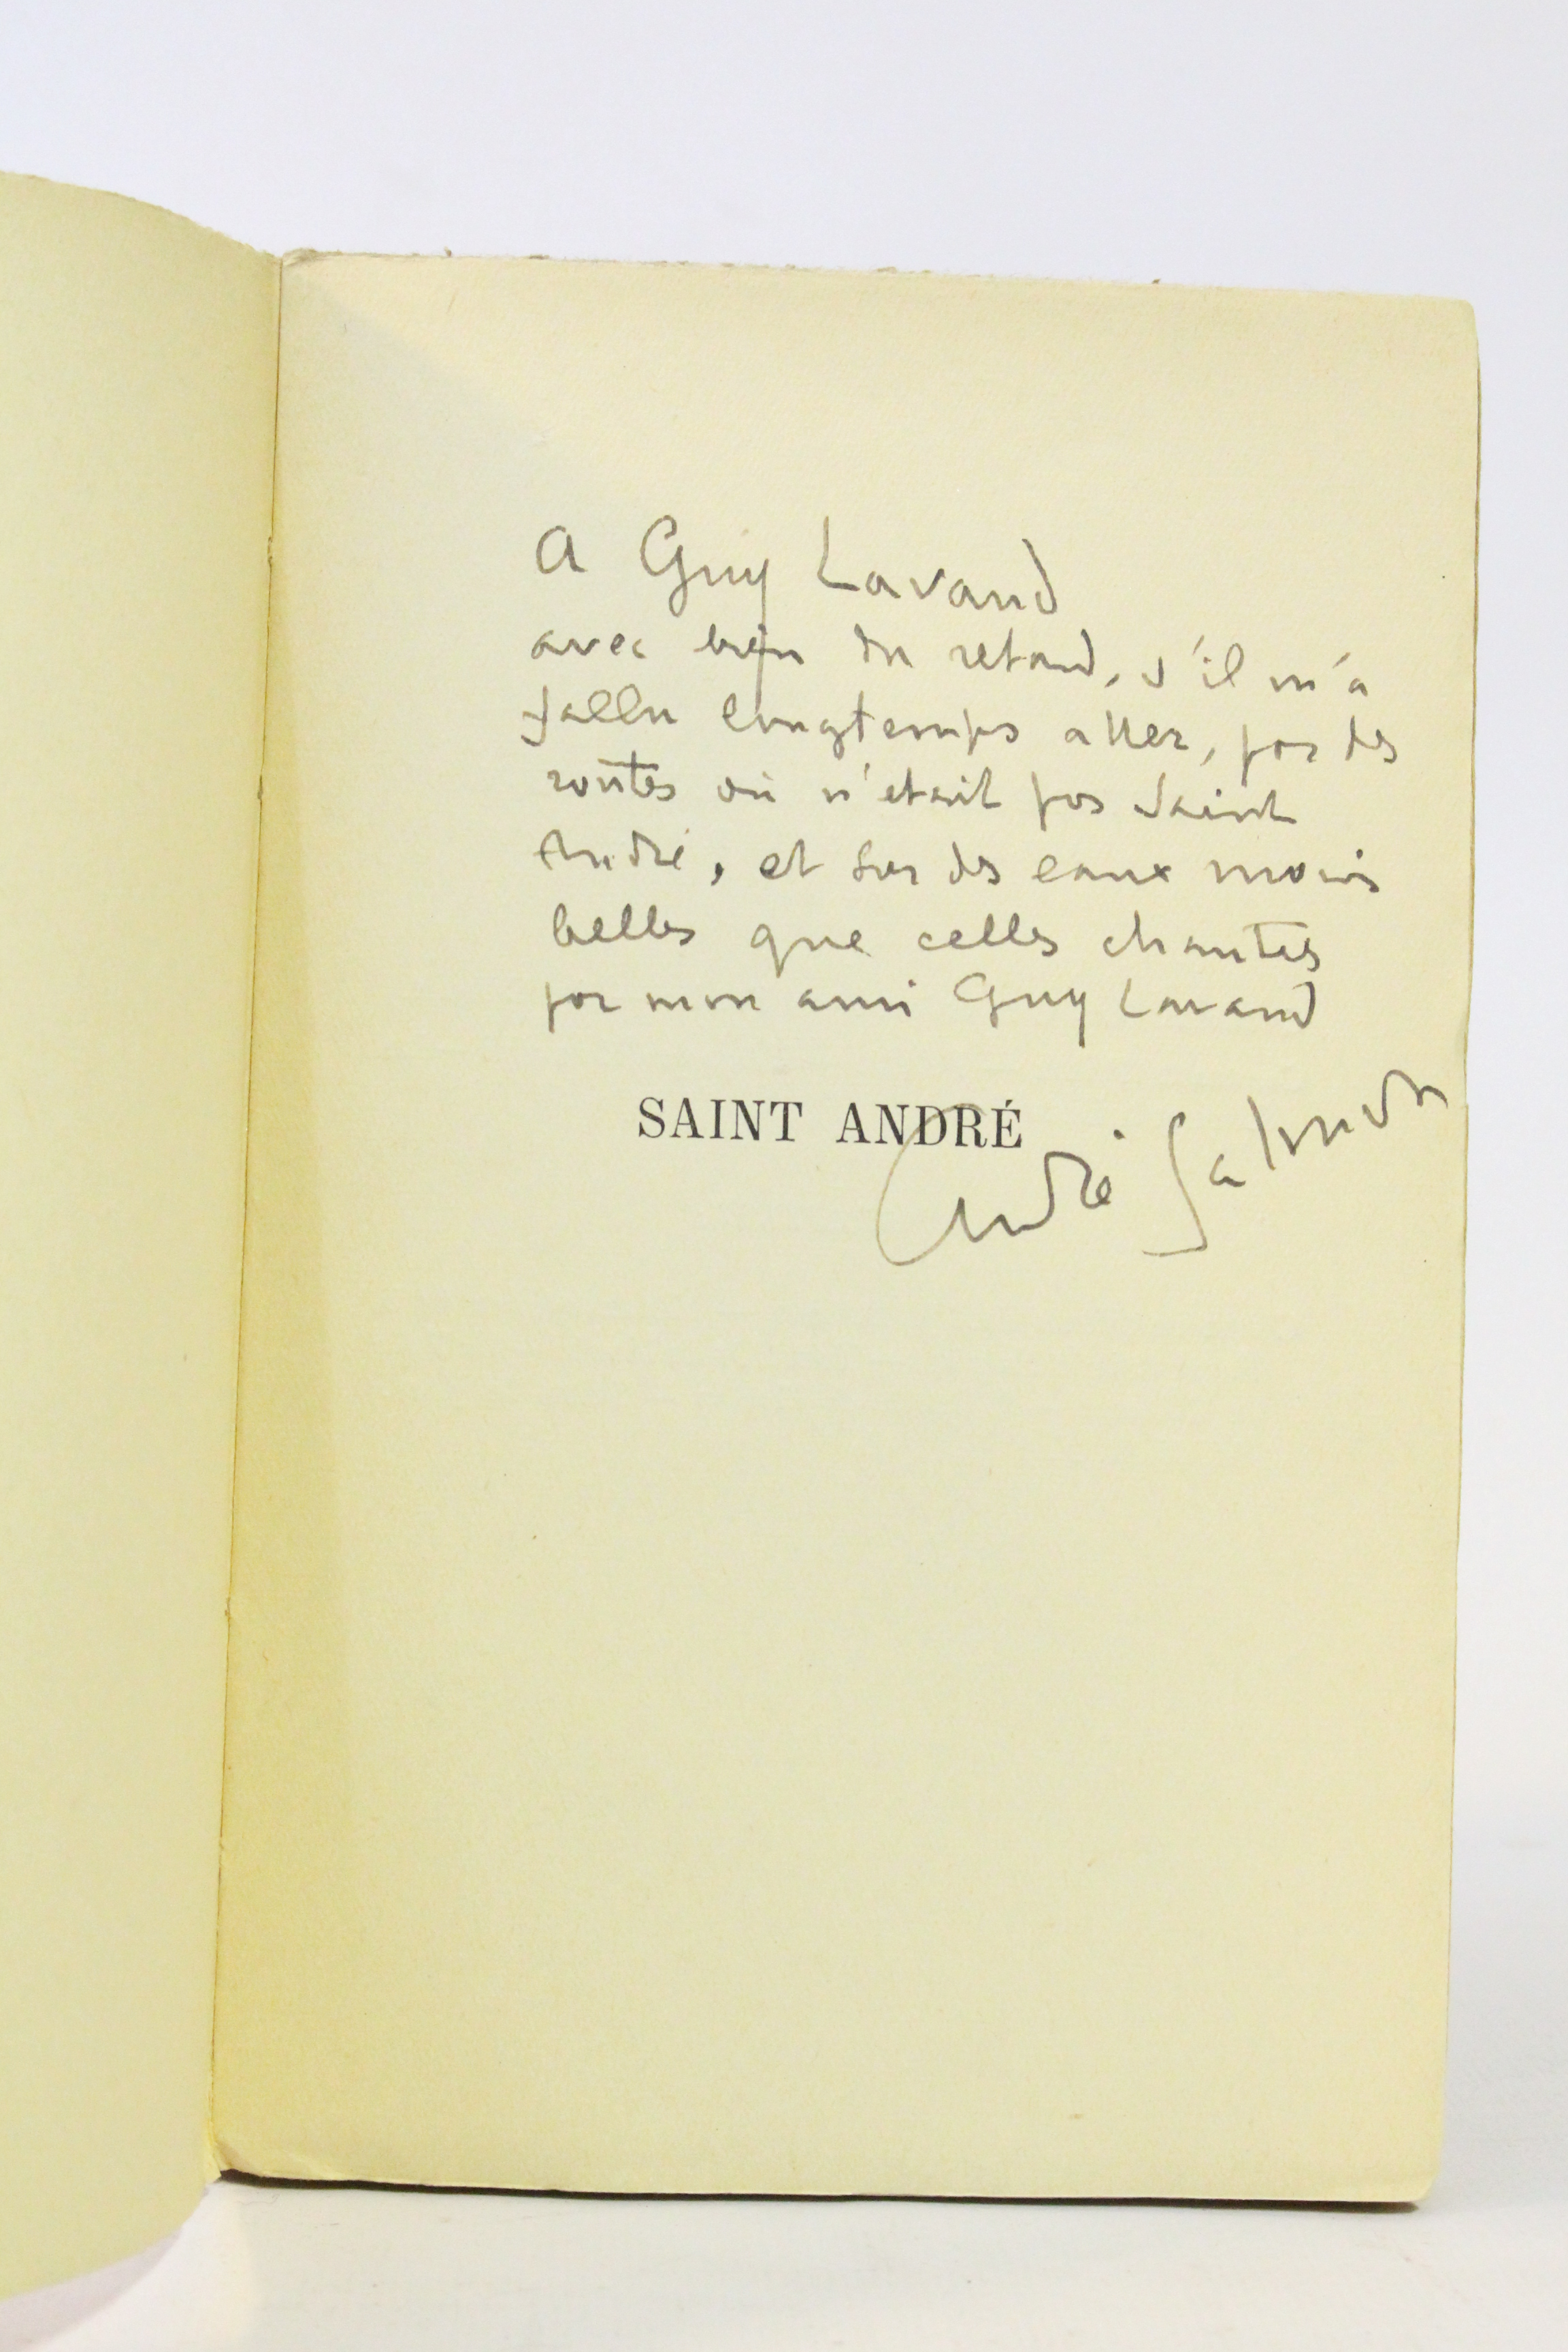 A Guy Lavaud
avec bien du retard, s'il m'a
fallu longtemps aller, par des
routes où n'était pas Saint
André, et sur des eaux moins
belles que celles chantées
par mon ami Guy Lavaud
SAINT ANDRÉ
André Salmon